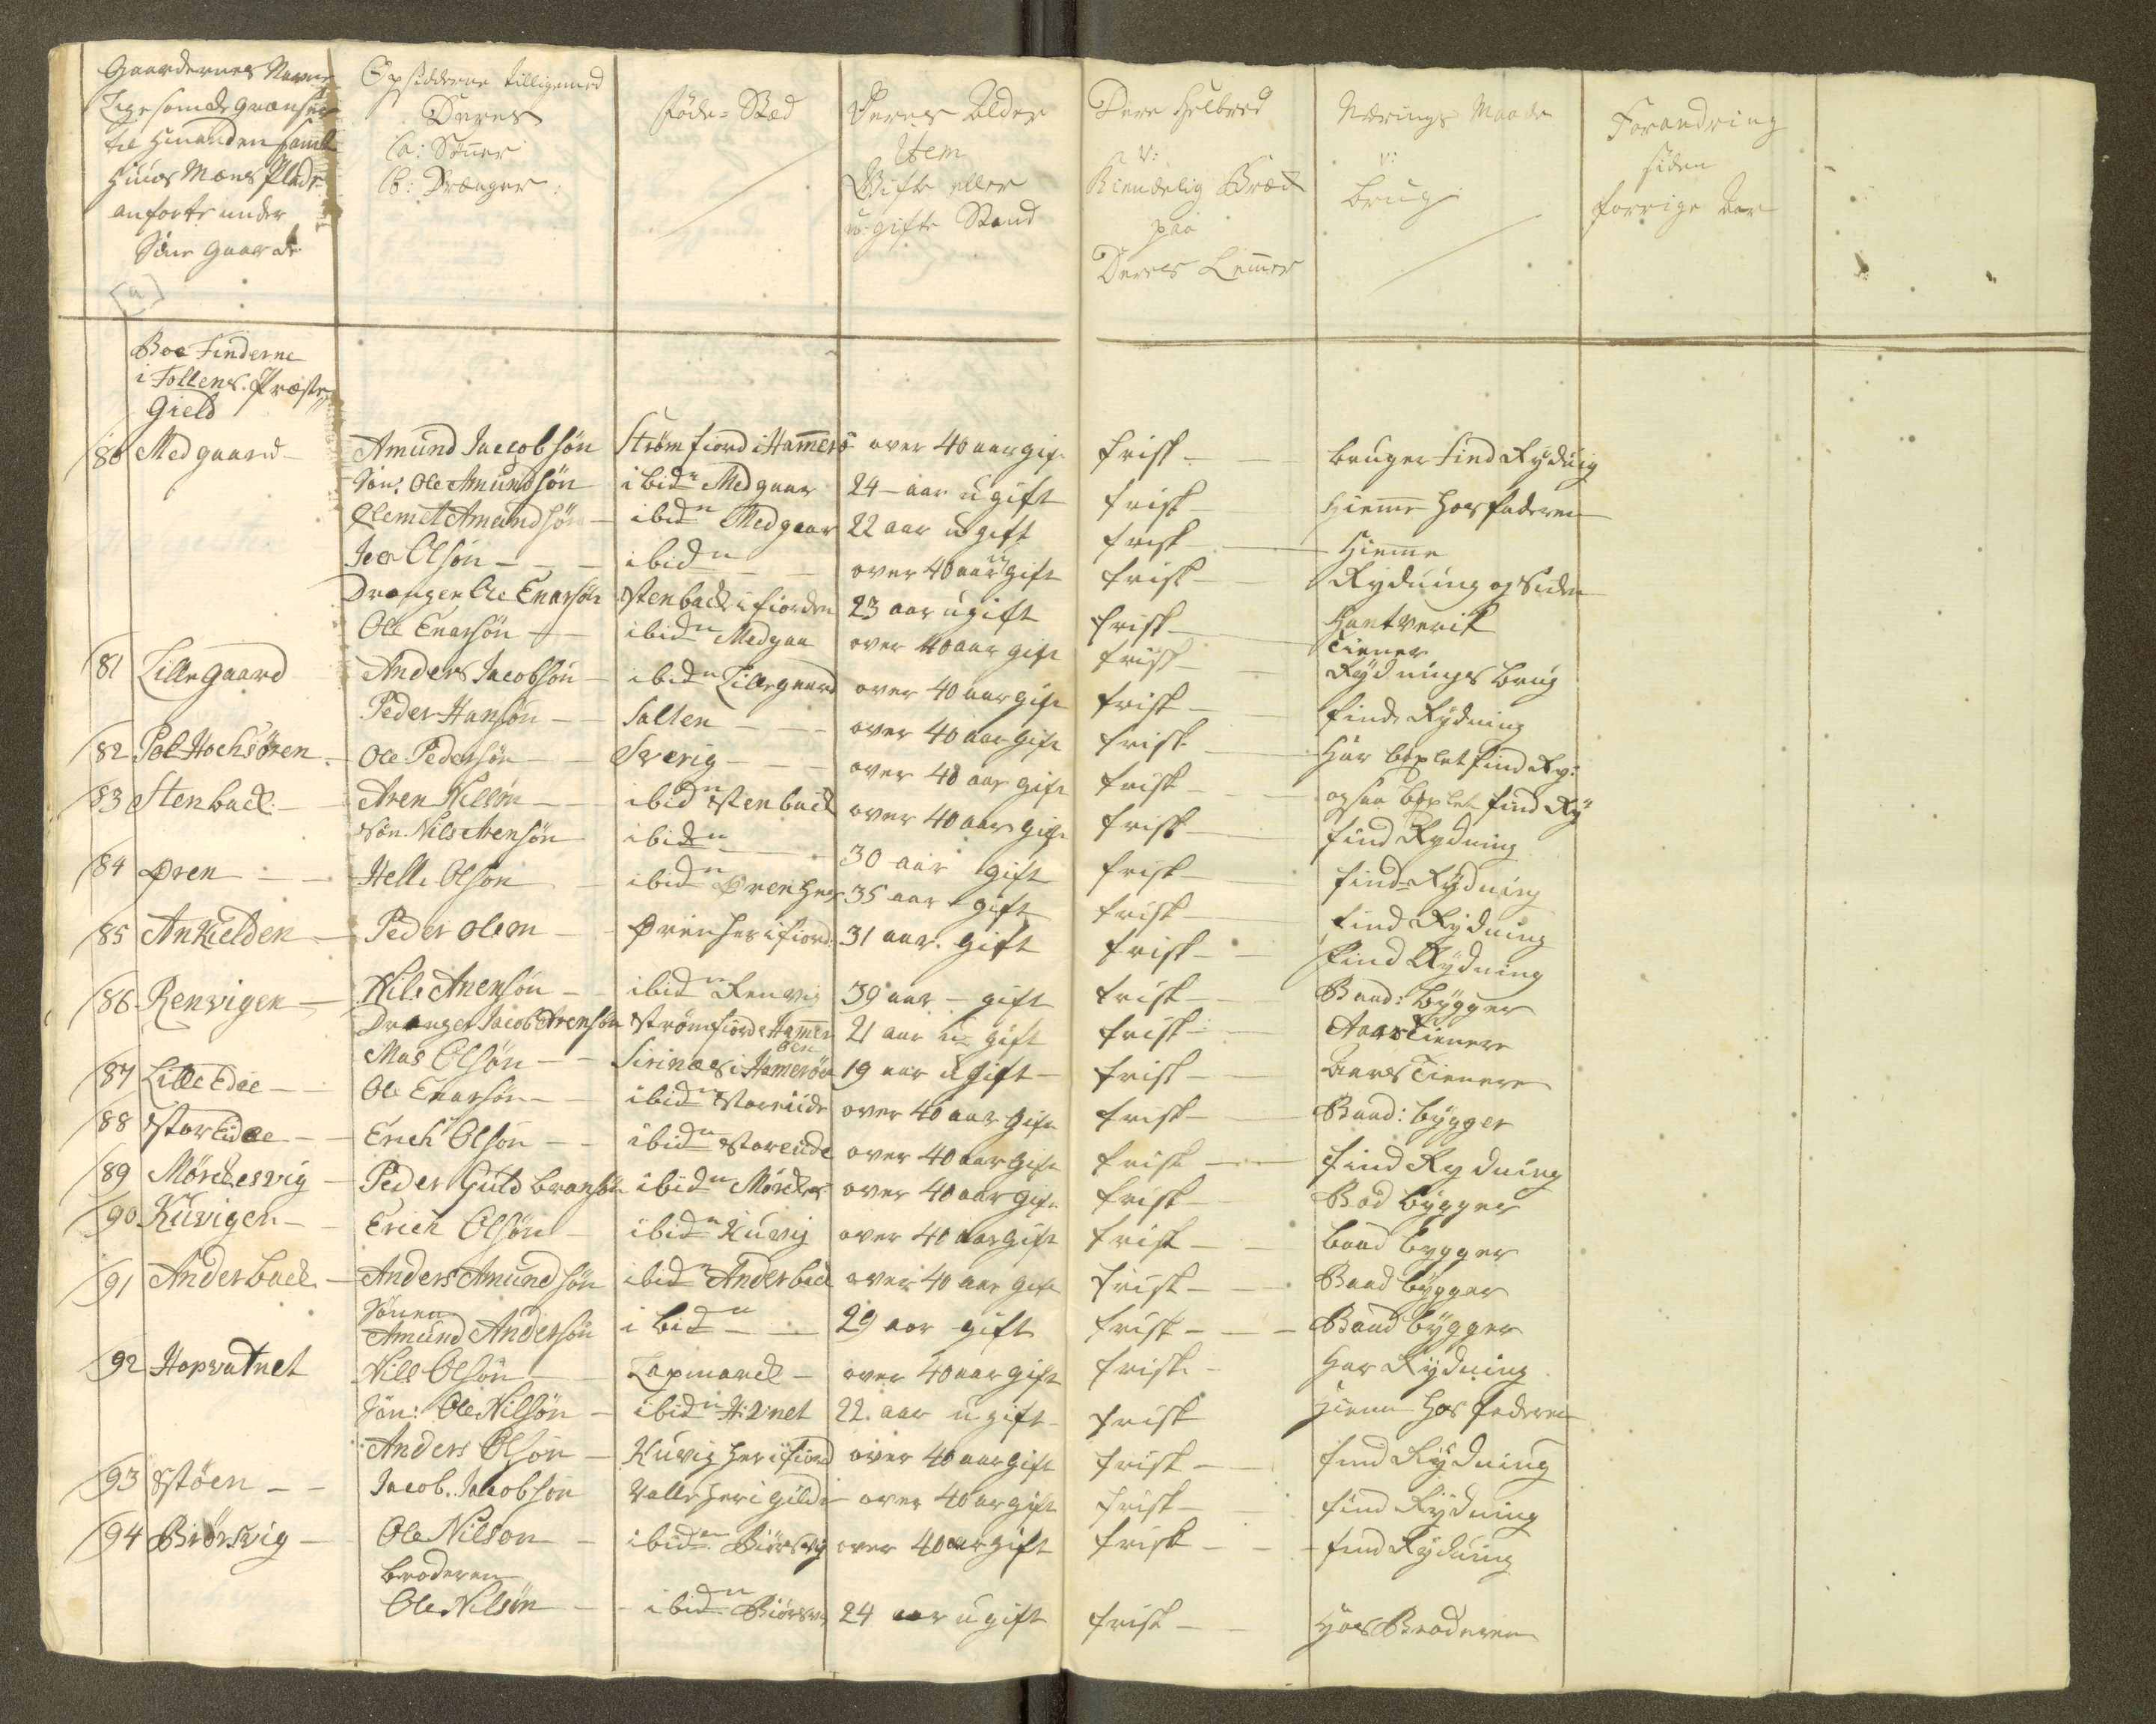 Gaardernes Navne
Lige som de grænser
til hinanden samt
Huus Mænd Pladse
anførte under
Sine Gaarde
Opsidderne tilligemed
Deres
a: Sønner
b: Drænger:
Føde-Stæd
Deres Alder
Item
Gifte eller
u-gifte Stand
Dere Helbred
v:
Kiendelig Bræk
paa
Deres Lemmer
Nærings Maade
v:
brug
Forandring
siden
forrige Aar
Boe Finderne
i Follens Præste
Gield
80 Medgaard - Amund Jacobsön Strømfiord i Hammerö over 40 aar gift frisk - bruger Find Rydnig
Søn: Ole Amundsön ibidn Medgaar 24 - aar ugift frisk - hiemme hos faderen
Clemet Amundsön - ibidn Medgaar 22 aar ugift frisk - Hiemme
Iver Olsön - - - ibidn - over 40 aar ugift frisk - Rydning og Siden
Drengen Ole Enarsön Stenback i fiorden 23 aar ugift frisk - Hantverik
Ole Enarsön - - ibidn Medgaa over 40 aar gift frisk - Tiener
81 Lillegaard Anders Jacobsön - ibidn Lillegaard over 40 aar gift frisk - Rydnings brug
Peder Hansön - - Salten - - - over 40 aar gift frisk - find Rydning
82 Pol Hochsören - Ole Pedersön - - Sverig - - - over 40 aar gift frisk - Har boplet find Ry:
83 Stenback - - Aren Nilsön - - ibidn Stenback over 40 aar gift frisk - ogsaa boplet find Ry
Sön. Nils Arensön ibidn - 30 aar gift frisk - find Rydning
84 Øren - - Helle Olson - ibidn Øren her 35 aar - gift frisk - find-Rydning
85 Ankielden - Peder olson - - Øren her i fiord: 31 aar. gift frisk - - find Rydning
86 Renvigen - Nils Arensön - - ibidn Renvig 39 aar - gift frisk - Baad: bygger
Drenger Jacob Arensön Strömfiord i Hammer 21 aar u gift frisk - Aars Tienere
Mas Olsön - - i Hamerøen 19 aar ugift - frisk - Aars Tienere
87 Lille Edee - - Ole Enarsön - - ibidn Storeiide over 40 aar gift frisk - Baad: bygger
88 Stor Eidee - - Erich Olsön - - ibidn Storeide over 40 aar gift frisk - find Rydning
89 Mörchesvig - Peder Guldbransön ibidn Mörches over 40 aar gift frisk - Bad bygger
90 Kuvigen - - Erich Olsön - ibidn Kuvig over 40 aar gift frisk - - baad bygger
91 Anderback - Anders Amundsön ibidn Anderback over 40 aar gift frisk - - Baad bygger
Sönen
Amund Andersön ibidn - - 29 aar gift frisk - - - Baad bygger
92 Hopvatnet Nils Olsön - - Lapmarck - over 40 aar gift frisk - har Rydning
Sön: Ole Nilsön - ibidn H:vnet 22. aar ugift - frisk Hiemme hos faderen
Anders Olsön - Kuvig her i fiord over 40 aar gift frisk - - find Rydning
93 Stöen - - Jacob. Jacobson Valle her i gildet over 40 aar gift frisk - find Rydning
94 Biörsvig - Ole Nilson - ibidn Biörsvig over 40 aar gift frisk - - - find Rydning
broderen
Ole Nilsön - - ibidn Biörsvig 24 aar ugift frisk - - Hos Broderen